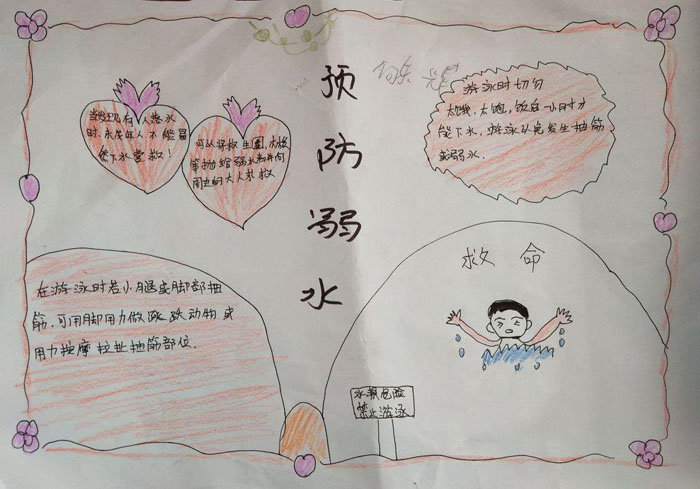 预防弱水
当发现有人落水
时,未成年人不能冒
然下水营救!
可以将救生圈,木板
等抛给弱水者并向
周边的大人求救
游泳时切勿
太饿、太饱,饭后一小时才
能下水,游泳以免发生抽筋
或弱水.
在游泳时若小腿或脚部抽
筋,可用脚用力做
跳动物或
用力按摩拉扯抽筋部位.
救命
水深危险
禁止游泳